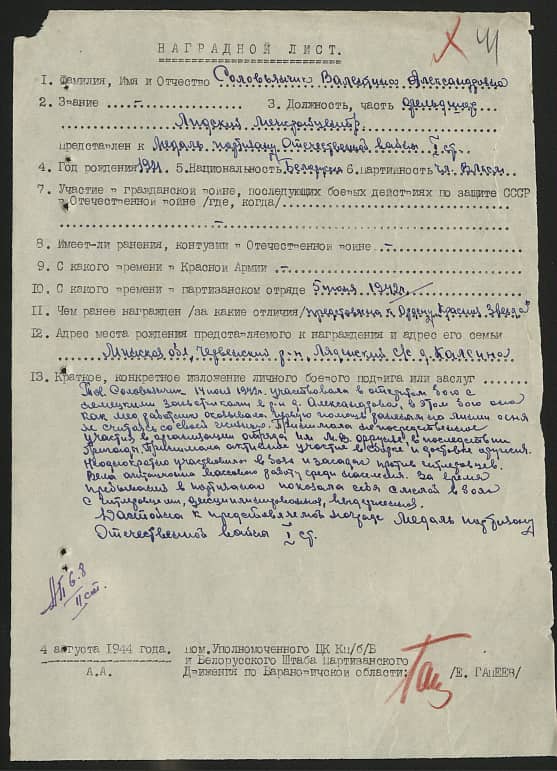 41
НАГРАДНОЙ ЛИСТ.
1. Фамилия, Имя и Отчество Соловьянчик Валентина Александровна
2. Звание - 3. Должность, часть фельдшер
Лидский межрайцентр
представлен к Медаль партизану Отечественной войны I ст.
4. Год рождения 1921. 5. Национальность Белоруска 6. Партийность чл. ВЛКСМ
7. Участие в гражданской войне, последующих боевых действиях по защите СССР
в Отечественной войне /где, когда/
-
8. Имеет-ли ранения, контузии в Отечественной войне -
9. С какого времени в Красной Армии -
10. С какого времени в партизанском отряде 5 июня 1942 г.
11. Чем ранее награжден /за какие отличия/ представлена к Ордену "Красная Звезда"
12. Адрес места рождения представляемого к награждения и адрес его семьи
Минская обл, Червенский р-н, Ляденский с/с д.
13. Краткое, конкретное изложение личного боевого подвига или заслуг
Тов. Соловьянчик 14 июля 1942 г. участвовала в открытом бою с
немецкими захватчиками в р-н д. Александрово, в этом бою она
как мед. работник оказывала первую помощь раненым на линии огня
не считаясь со своей жизнью. Принимала непосредственное
участие в организации отряда им. М.В. Фрунзе, в последствии
Принимала активное участие в сборе и доставке оружия.
Неоднократно участвовала в боях и засадах против гитлеровцев.
Вела активную массовую работу среди населения. За время
пребывания в партизанах показала себя смелой в боях
с гитлеровцами, дисциплинированной, выдержанной.
Достойна к представляемой награде Медаль партизану
Отечественной войны I ст.
6.8
II ст.
4 августа 1944 года.
А.А.
пом. Уполномоченного ЦК КП/б/Б
и Белорусского Штаба Партизанского
Движения по Барановичской области:
/Е. Гапеев/